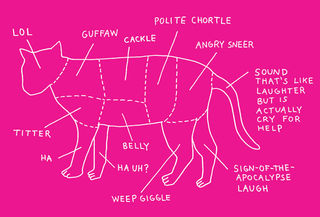 LOL
GUFFAW
CACKLE
POLITE CHORTLE
ANGRY SNEER
SOUND
THAT'S LIKE
LAUGHTER
BUT IS
ACTUALLY
CRY FOR
HELP
TITTER
HA
HA UH?
BELLY
WEEP GIGGLE
SIGN-OF-THE-
APOCALYPSE
LAUGH